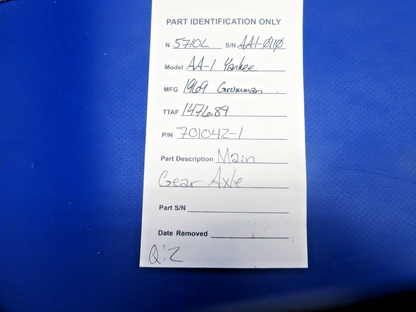 PART IDENTIFICATION ONLY
N 5710L S/N AA1-0110
Model AA-1 Yankee
MFG 1969 Grumman
TTAF 1476.89
P/N 701042-1
Part Description Main
Gear Axle
Part S/N
Date Removed
Q:2